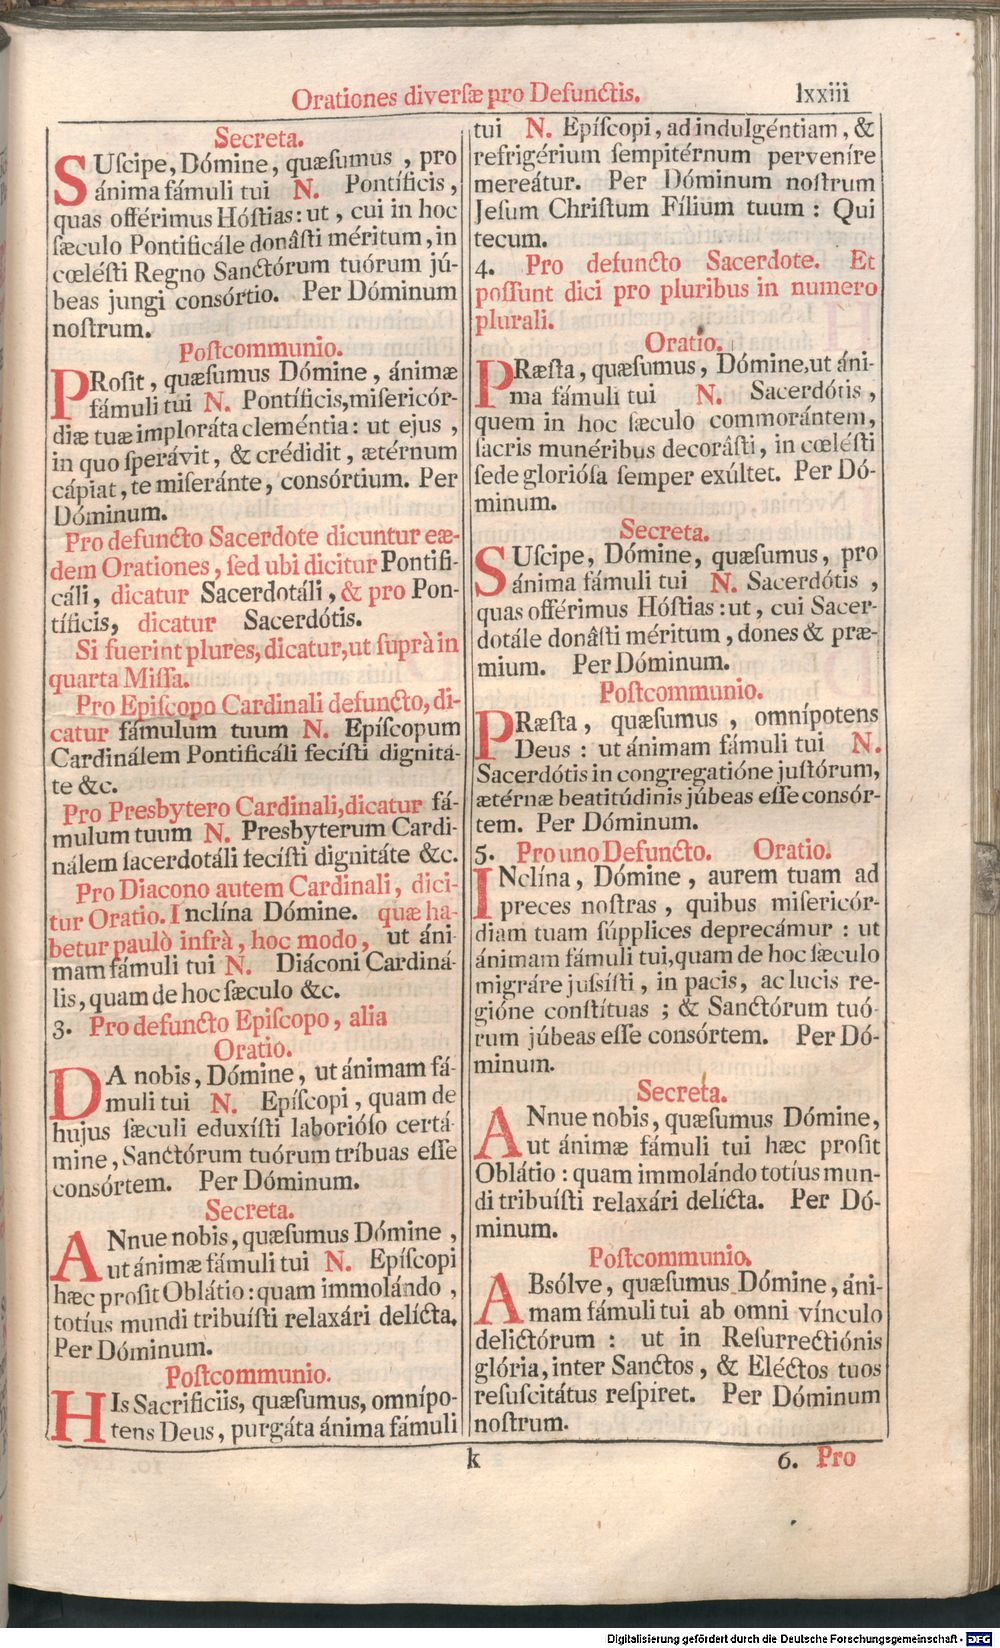 Orationes diverſæ pro Defunctis. lxxiii
Secreta.
SUſcipe, Dómine, quæſumus, pro
ánima fámuli tui N. Pontíficis,
quas offérimus Hóſtias: ut, cui in hoc
ſæculo Pontificále donâſti méritum, in
cœléſti Regno Sanctórum tuórum jú-
beas jungi consórtio. Per Dóminum
noſtrum.
Poſtcommunio.
PRoſit, quæſumus Dómine, ánimæ
fámuli tui N. Pontíficis, miſericór-
diæ tuæ imploráta cleméntia: ut ejus,
in quo ſperávit, & crédidit, ætérnum
cápiat, te miſeránte, consórtium. Per
Dóminum.
Pro defuncto Sacerdote dicuntur eæ-
dem Orationes, ſed ubi dicitur Pontifi-
cáli, dicatur Sacerdotáli, & pro Pon-
tíficis, dicatur Sacerdótis.
Si fuerint plures, dicatur, ut ſuprà in
quarta Miſſa.
Pro Epiſcopo Cardinali defuncto, di-
catur fámulum tuum N. Epíſcopum
Cardinálem Pontificáli fecíſti dignitá-
te &c.
Pro Presbytero Cardinali, dicatur fá-
mulum tuum N. Presbyterum Cardi-
nálem ſacerdotáli fecíſti dignitáte &c.
Pro Diacono autem Cardinali, dici-
tur Oratio. Inclína Dómine. quæ ha-
betur paulò infrà, hoc modo, ut áni-
mam fámuli tui N. Diáconi Cardiná-
lis, quam de hoc ſæculo &c.
3. Pro defuncto Epiſcopo, alia
Oratio.
DA nobis, Dómine, ut ánimam fá-
muli tui N. Epíſcopi, quam de
hujus ſæculi eduxíſti laborióſo certá-
mine, Sanctórum tuórum tríbuas eſſe
consórtem. Per Dóminum.
Secreta.
ANnue nobis, quæſumus Dómine,
ut ánimæ fámuli tui N. Epíſcopi
hæc proſit Oblátio: quam immolándo,
totíus mundi tribuíſti relaxári delícta.
Per Dóminum.
Poſtcommunio.
HIs Sacrificiis, quæſumus, omnípo-
tens Deus, purgáta ánima fámuli
tui N. Epíſcopi, ad indulgéntiam, &
refrigérium ſempitérnum perveníre
mereátur. Per Dóminum noſtrum
Jeſum Chriſtum Fílium tuum: Qui
tecum.
4. Pro defuncto Sacerdote. Et
poſſunt dici pro pluribus in numero
plurali.
Oratio.
PRæſta, quæſumus, Dómine, ut áni-
ma fámuli tui N. Sacerdótis,
quem in hoc ſæculo commorántem,
ſacris munéribus decorâſti, in cœléſti
ſede glorióſa ſemper exúltet. Per Dó-
minum.
Secreta.
SUſcipe, Dómine, quæſumus, pro
ánima fámuli tui N. Sacerdótis,
quas offérimus Hóſtias: ut, cui Sacer-
dotále donâſti méritum, dones & præ-
mium. Per Dóminum.
Poſtcommunio.
PRæſta, quæſumus, omnípotens
Deus: ut ánimam fámuli tui N.
Sacerdótis in congregatióne juſtórum,
ætérnæ beatitúdinis júbeas eſſe consór-
tem. Per Dóminum.
5. Pro uno Defuncto. Oratio.
INclína, Dómine, aurem tuam ad
preces noſtras, quibus miſericór-
diam tuam ſúpplices deprecámur: ut
ánimam fámuli tui, quam de hoc ſæculo
migráre juſsíſti, in pacis, ac lucis re-
gióne conſtítuas; & Sanctórum tuó-
rum júbeas eſſe consórtem. Per Dó-
minum.
Secreta.
ANnue nobis, quæſumus Dómine,
ut ánimæ fámuli tui hæc proſit
Oblátio: quam immolándo totíus mun-
di tribuíſti relaxári delícta. Per Dó-
minum.
Poſtcommunio.
ABsólve, quæſumus Dómine, áni-
mam fámuli tui ab omni vínculo
delictórum: ut in Reſurrectiónis
glória, inter Sanctos, & Eléctos tuos
reſuſcitátus reſpiret. Per Dóminum
noſtrum.
k 6. Pro
Digitalisierung gefördert durch die Deutsche Forschungsgemeinschaft - DFG